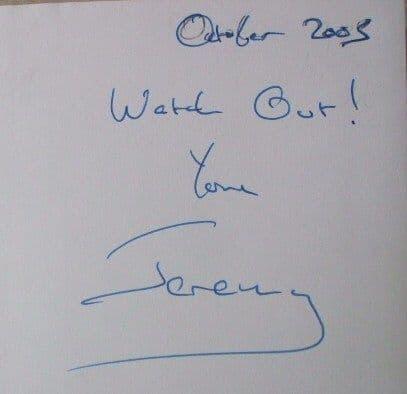 October 2005
Watch Out!
Yours
Jeremy